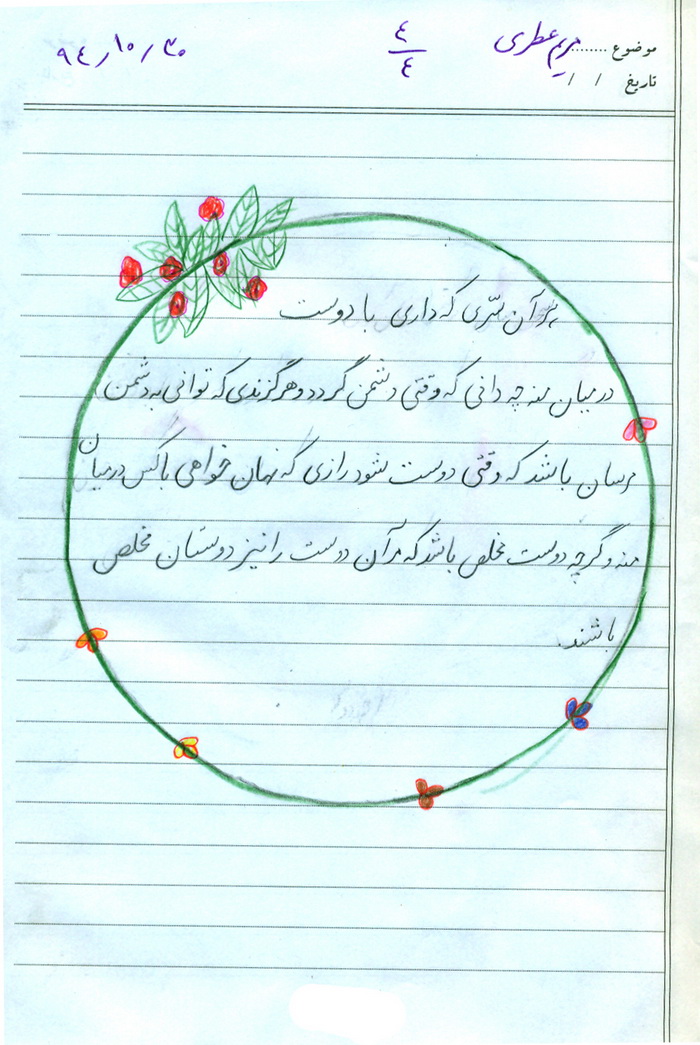 موضوع ........ مریم عطری
۴/۴
۹۴/۱۰/۳۰
تاریخ / /
هر آن سّری که داری با دوست
در میان منه چه دانی که وقتی دشمن گردد و هر گزندی که توانی به دشمن
مرسان باشد که وقتی دوست شود رازی که نهان خواهی با کس در میان
منه و گرچه دوست مخلص باشد که مر آن دوست را نیز دوستان مخلص
باشند.